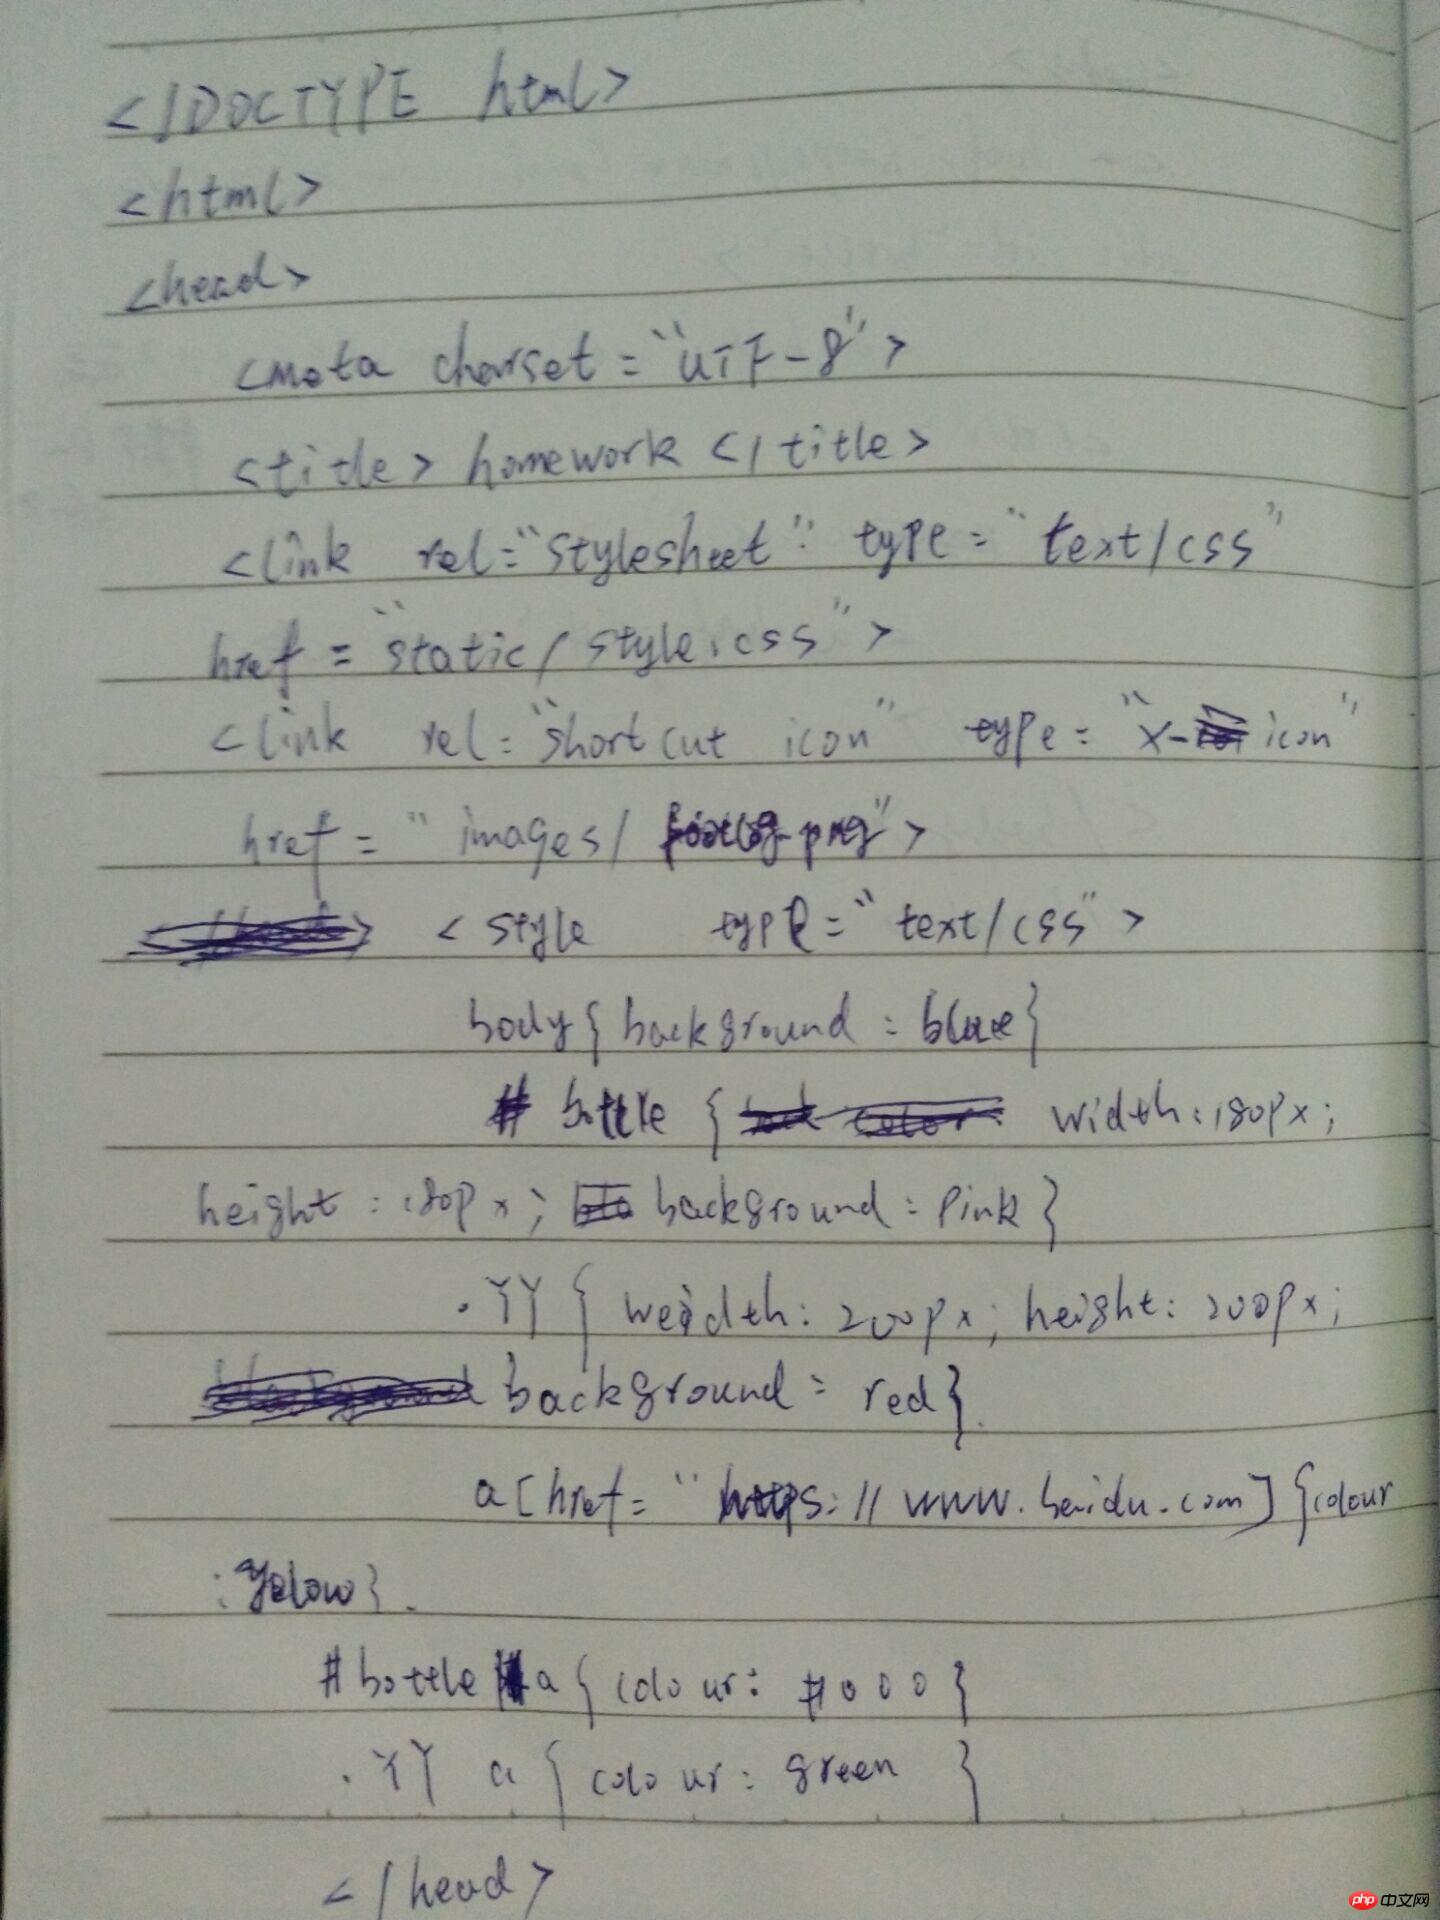 <!DOCTYPE html>
<html>
<head>
<meta charset="UTF-8">
<title> homework </title>
<link rel="stylesheet" type="text/css"
href="static/style.css">
<link rel="short cut icon" type="x-icon"
href="images/ .png">
<style type="text/css">
body{background:blue}
#bottle{ width:180px;
height:180px; background:pink}
.YY{weidth:200px;height:200px;
background:red}.
a[href="https://www.baidu.com]{colour
:yelow}.
#bottle a{colour:#000}
.YY a{colour:green}
</head>
php 中文网